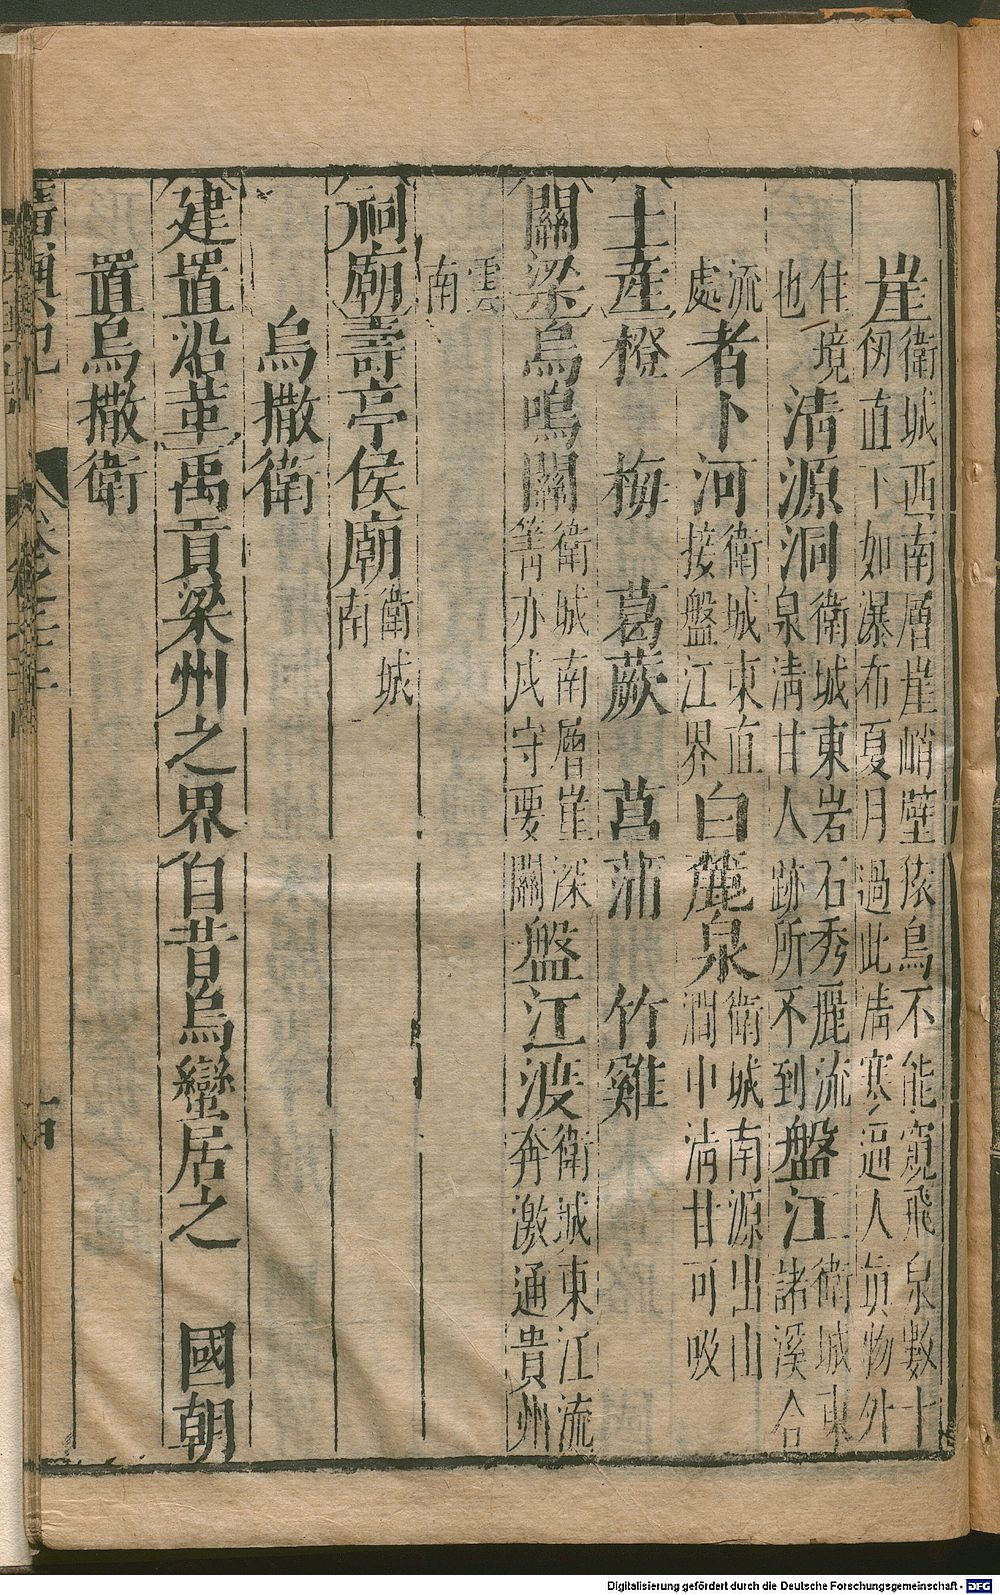 崖衛城西南層崖峭壁猿鳥不能窺飛泉數十
仞直下如瀑布夏月過此清寒逼人真物外
佳境
也
清源洞衛城東岩石秀麗流
泉清甘人跡所不到
盤江衛城東
諸溪合
流
處
者卜河衛城東直
接盤江界
白麓泉衛城南源出山
澗中清甘可吸
土產橙 梅 葛蕨 菖蒲 竹雞
關梁烏鳴關衛城南層崖深
箐亦戍守要關
盤江渡衛城東江流
奔激通貴州
雲
南
祠廟壽亭侯廟衛城
南
烏撒衛
建置沿革禹貢梁州之界 自昔烏蠻居之 國朝
置烏撒衛
Digitalisierung gefördert durch die Deutsche Forschungsgemeinschaft - DFG